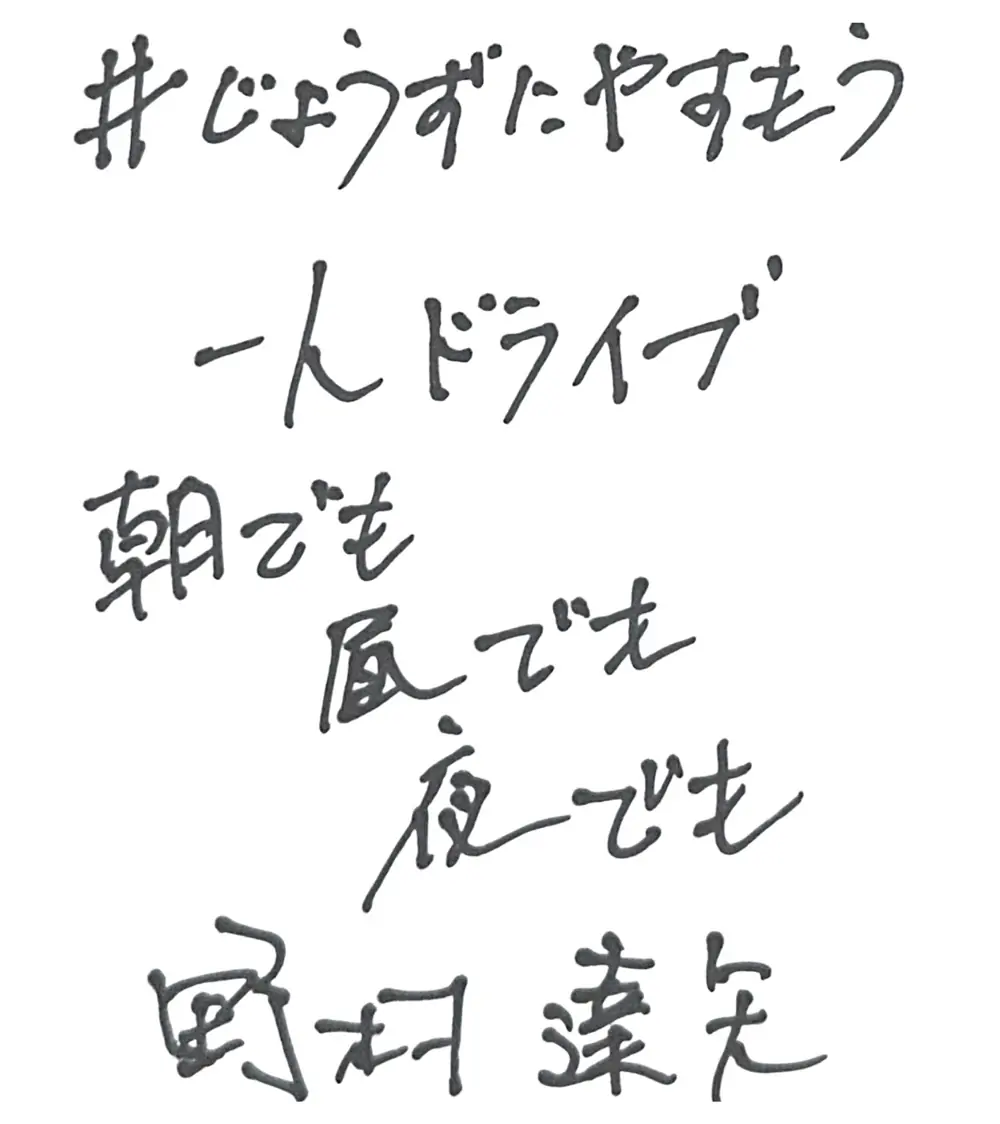 #じょうずにやすもう
一人ドライブ
朝でも
昼でも
夜でも
野村 達矢